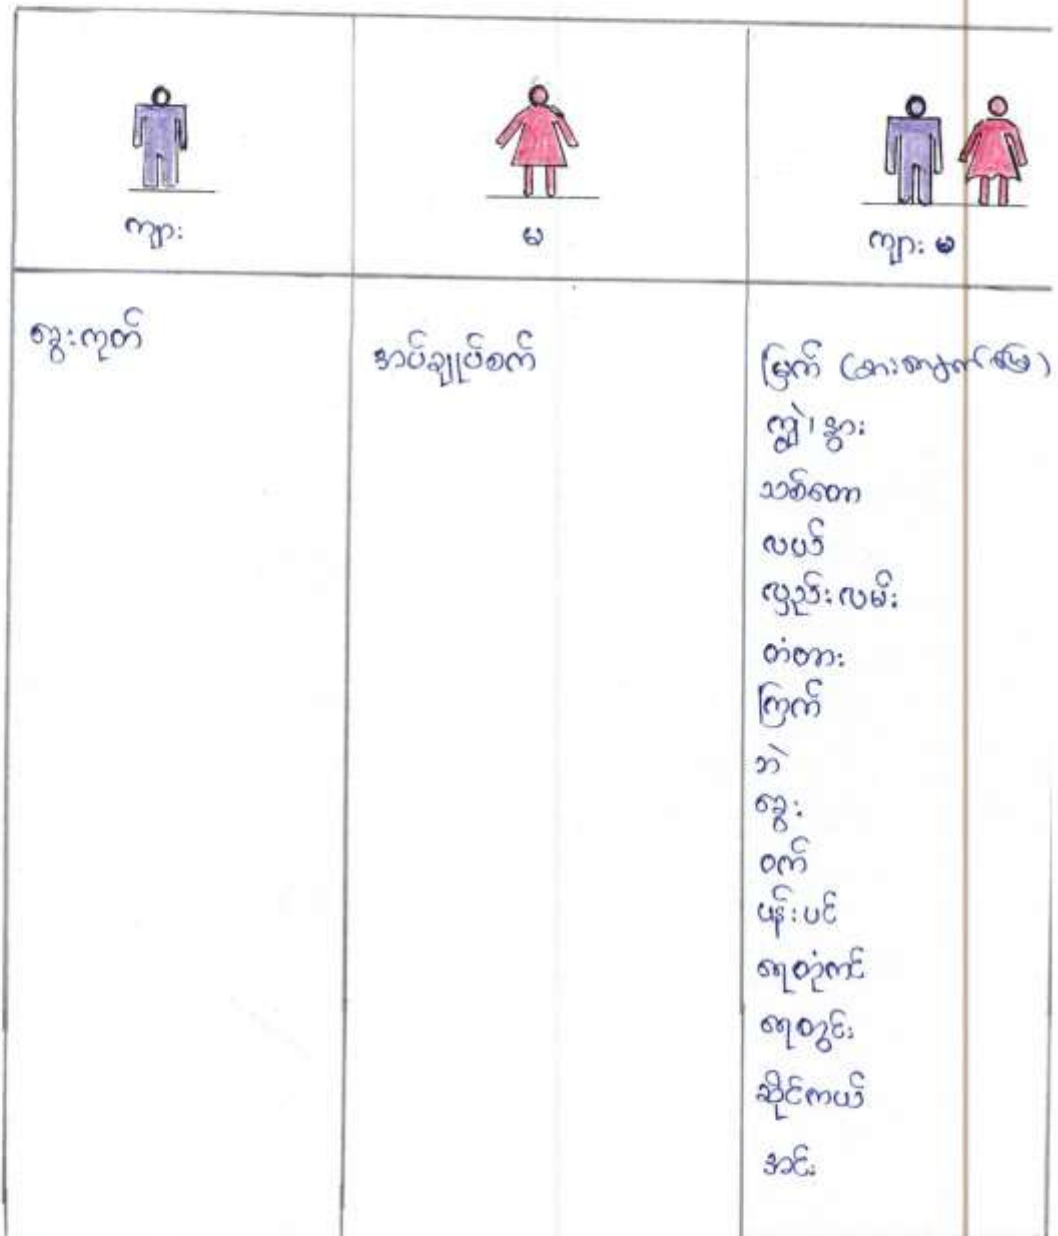 ကျား
မ
ကျား မ
ခွေးကုတ်
အပ်ချုပ်စက်
မြက်
ကျွဲ၊ နွား
သစ်တော
လယ်
လှည်းလမ်း
တံတား
ကြက်
ဘဲ
ခွေး
ဝက်
ပန်းပင်
ရေတုံကင်
ရေတွင်း
ဆိုင်ကယ်
အင်း